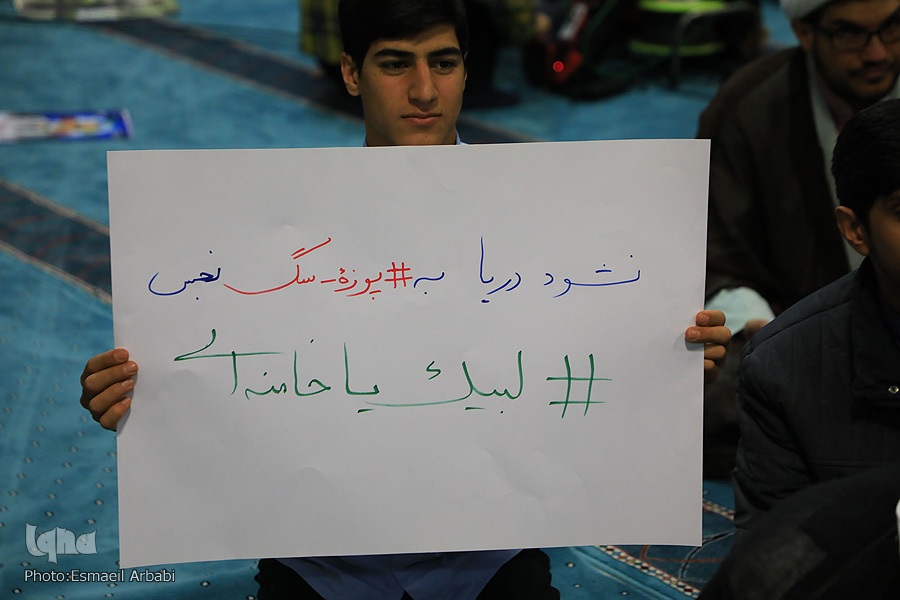 نشود دریا به #پوزهٔ-سگ نجس
# لبیک یا خامنه ای
Iqna
Photo:Esmaeil Arbabi